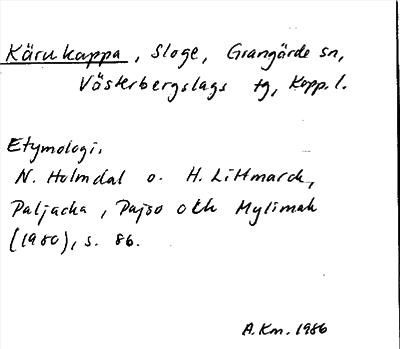 Kärukappa, Sloge, Grangärde sn,
Västerbergslags tg, Kopp. l.
Etymologi.
N. Holmdal o. H. Littmarck,
Paljacka, Pajso och Mylimak
(1980), s. 86.
A.Km. 1986